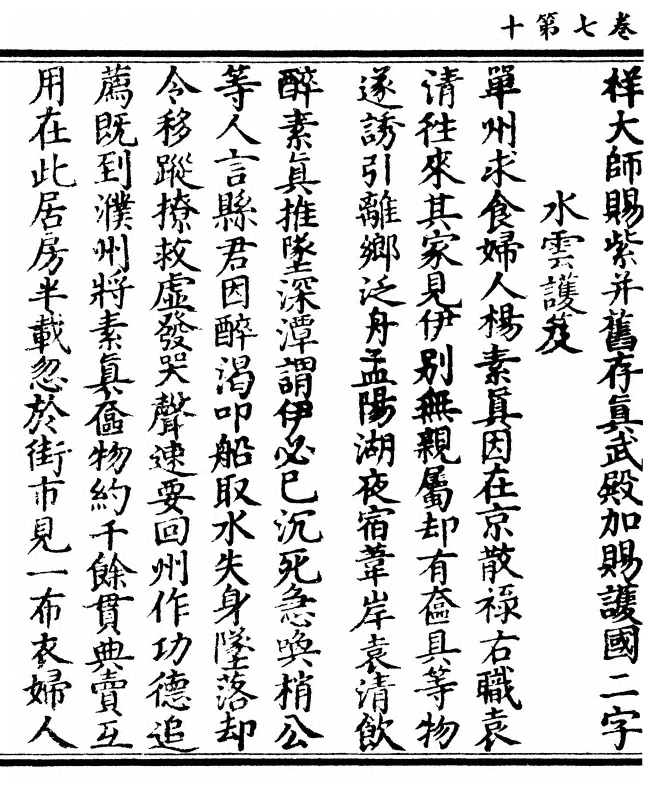 卷七第十
祥大師賜紫并舊存眞武殿加賜護國二字
水雲護笈
單州求食婦人楊素眞因在京散祿右職袁
清往來其家見伊别無親屬却有奩具等物
遂誘引離鄉泛舟孟陽湖夜宿葦岸袁清飲
醉素眞推墜深潭謂伊必已沉死急喚梢公
等人言縣君因醉渴叩船取水失身墜落却
令移蹤撩救虛發哭聲速要回州作功德追
薦既到濮州將素眞奩物約千餘貫典賣互
用在此居房半載忽於街市見一布衣婦人